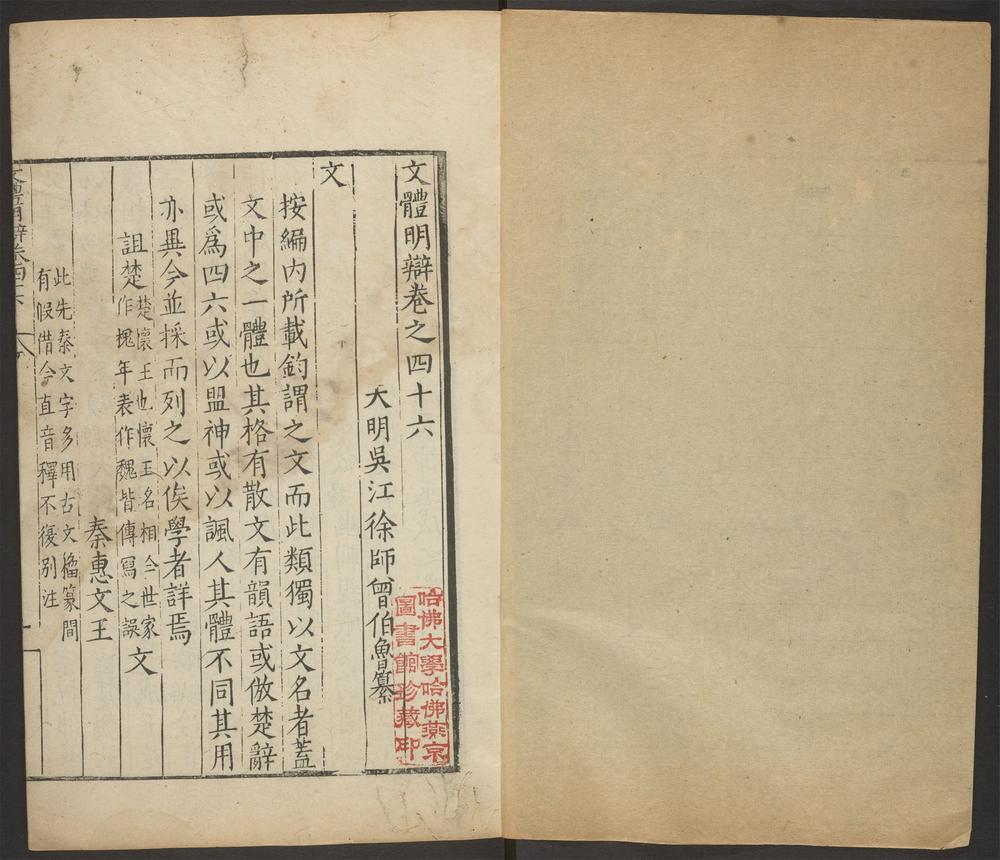 文體明辯卷之四十六
大明吳江徐師曾伯魯纂
哈佛大學哈佛燕京
圖書館珍藏印
文
按編内所載鈞謂之文而此類獨以文名者蓋
文中之一體也其格有散文有韻語或倣楚辭
或爲四六或以盟神或以諷人其體不同其用
亦異今並採而列之以俟學者詳焉
詛楚文
楚懷王也懷王名相今世家
作槐年表作魏皆傳寫之誤
秦惠文王
此先秦文字多用古文籀篆間
有假借今直音釋不復别注
文體明辯卷四十六